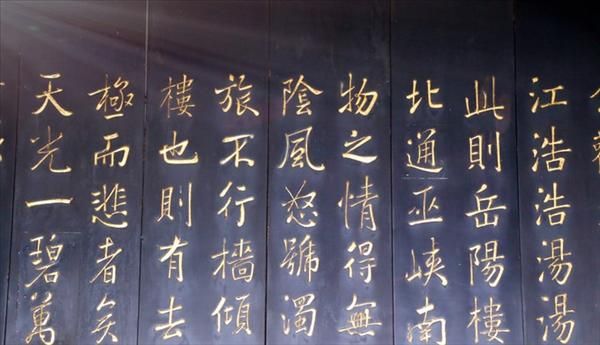 江浩浩湯湯
此則岳陽樓
北通巫峽南
物之情得無
陰風怒號濁
旅不行檣傾
樓也則有去
極而悲者矣
天光一碧萬